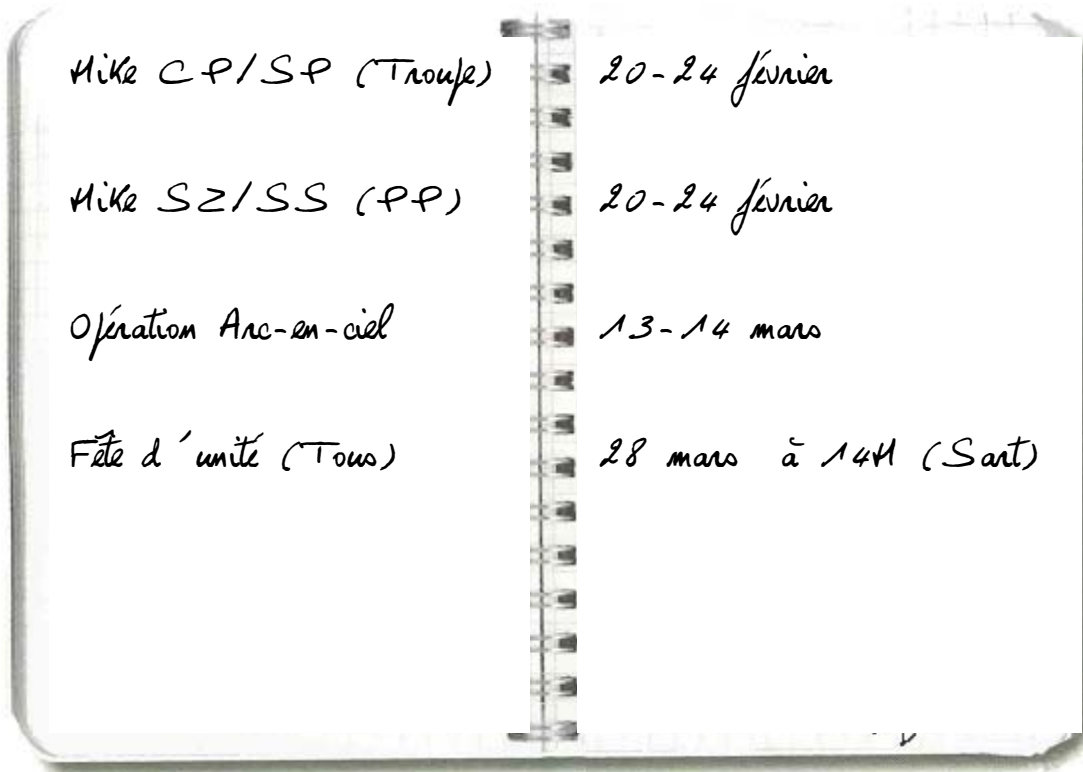 Hike CP/SP (Troupe) 20-24 février
Hike SZ/SS (PP) 20-24 février
Opération Arc-en-ciel 13-14 mars
Fête d'unité (Tous) 28 mars à 14H (Sart)